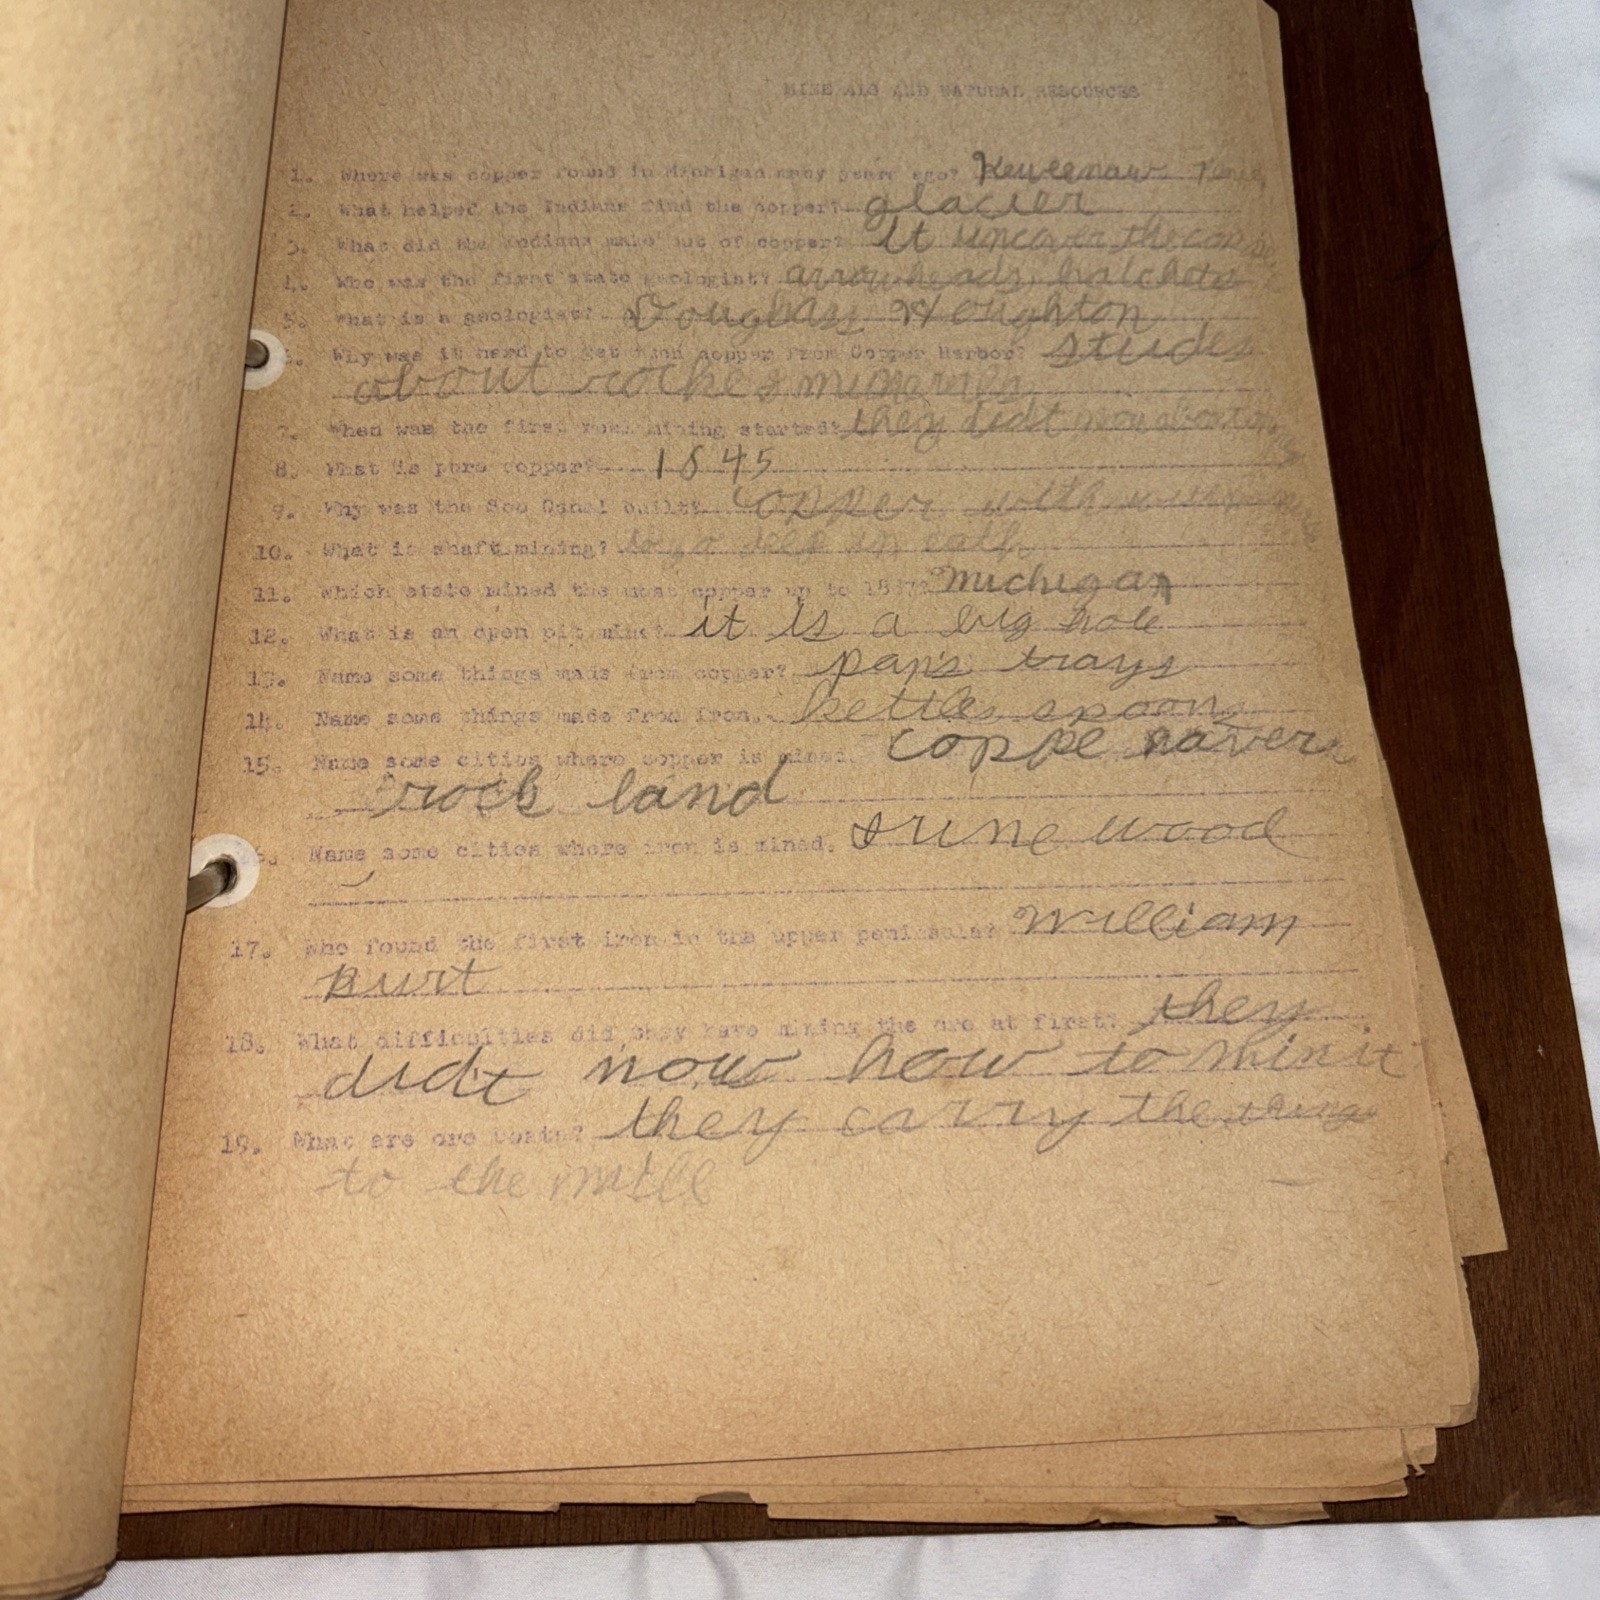 MINERALS AND NATURAL RESOURCES
1. Where was copper found in Michigan many years ago? Keweenaw
2. What helped the Indians find the copper? glacier
3. What did the Indians make out of copper? it uncover the
4. Who was the first state geologist? arrowheads, hatchets
5. What is a geologist? Houghton
Why was it hard to get much copper from Copper Harbor? studes
about
7. When was the first real mining started? they didt now about
8. What is pure copper? 1845
9. Why was the Soo Canal built? copper with
10. What is shaft mining? to go in
11. Which state mined the most copper up to michigan
12. What is an open pit mine? it is a big hole
13. Name some things made from copper? pans trays
14. Name some things made from iron. kettles spoons
15. Name some cities where copper is mined. coppe
rock land
Name some cities where iron is mined. wood
17. Who found the first iron in the upper peninsula? William
Burt
18. What difficulties did they have mining the ore at first? they
didt now how to min it
19. What are ore boats? they carry the things
to the mill